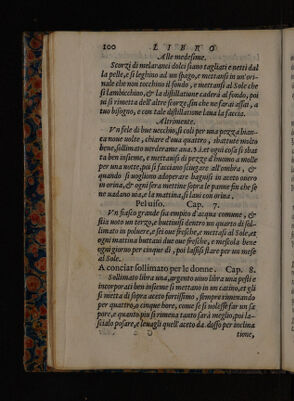 100 LIBRO
Alle medesime.
Scorzi di melaranci dolci siano tagliati e netti dal
la pelle, e si leghino ad un spago, e mettansi in un'ori-
nale che non tocchino il fondo, e mettansi al Sole che
si lambicchino, & la distillatione caderà al fondo, poi
ne si rimetta dell'altre scorze, sin che ne farai assai, a
tuo bisogno, e con tale distillatione laua la faccia.
Altrimente.
Vn fele di bue vecchio, si coli per una pezza bian-
ca noue uolte, chiare d'oua quattro, sbattute molto
bene, sollimato
ta ben insieme, e mettausi di pezze d'huomo a molle
per una notte, poi si facciano sciugare all'ombra, &
quando si uogliono adoperare bagnisi in aceto ouero
in orina, & ogni sera mettine sopra le panne fin che se
ne uadano via, e la mattina, si laui con orina.
Pel uiso. Cap. 7.
Vn fiasco grande sia empito d'acqua comune, &
stia noto un terzo, e buttisili dentro un quarto di sol-
limato in poluere, e sei oue fresche, e mettasi al Sole, et
ogni mattina buttasi due oue fresche, e mescola bene
ogni giorno per cinque dì, poi lassisi stare per un mese
al Sole.
A conciar sollimato per le donne. Cap. 8.
Sollimato libra una, argento uiuo libra una pesti e
incorporati ben insieme si mettano in un catino, et gli
si metta di sopra aceto fortissimo, sempre rimenando
per quattro, o cinque hore, come se si uolesse far un sa
pore, e quanto piu si rimena tanto sarà meglio, poi la-
scialo posare, e leuagli quell'aceto da dosso per inclina
tione,